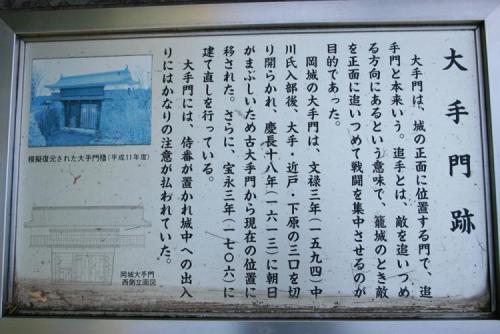 大手門跡
大手門は、城の正面に位置する門で、追
手門と本来いう。追手とは、敵を追いつめ
る方向にあるという意味で、籠城のとき敵
を正面に追いつめて戦闘を集中させるのが
目的であった。
岡城の大手門は、文禄三年(一五九四)中
川氏入部後、大手・近戸・下原の三口を切
り開らかれ、慶長十八年(一六一三)に朝日
がまぶしいため古大手門から現在の位置に
移された。さらに、宝永三年(一七〇六)に
建て直しを行っている。
大手門には、侍番が置かれ城中への出入
りにはかなりの注意が払われていた。
模擬復元された大手門櫓(平成11年度)
岡城大手門
西側立面図